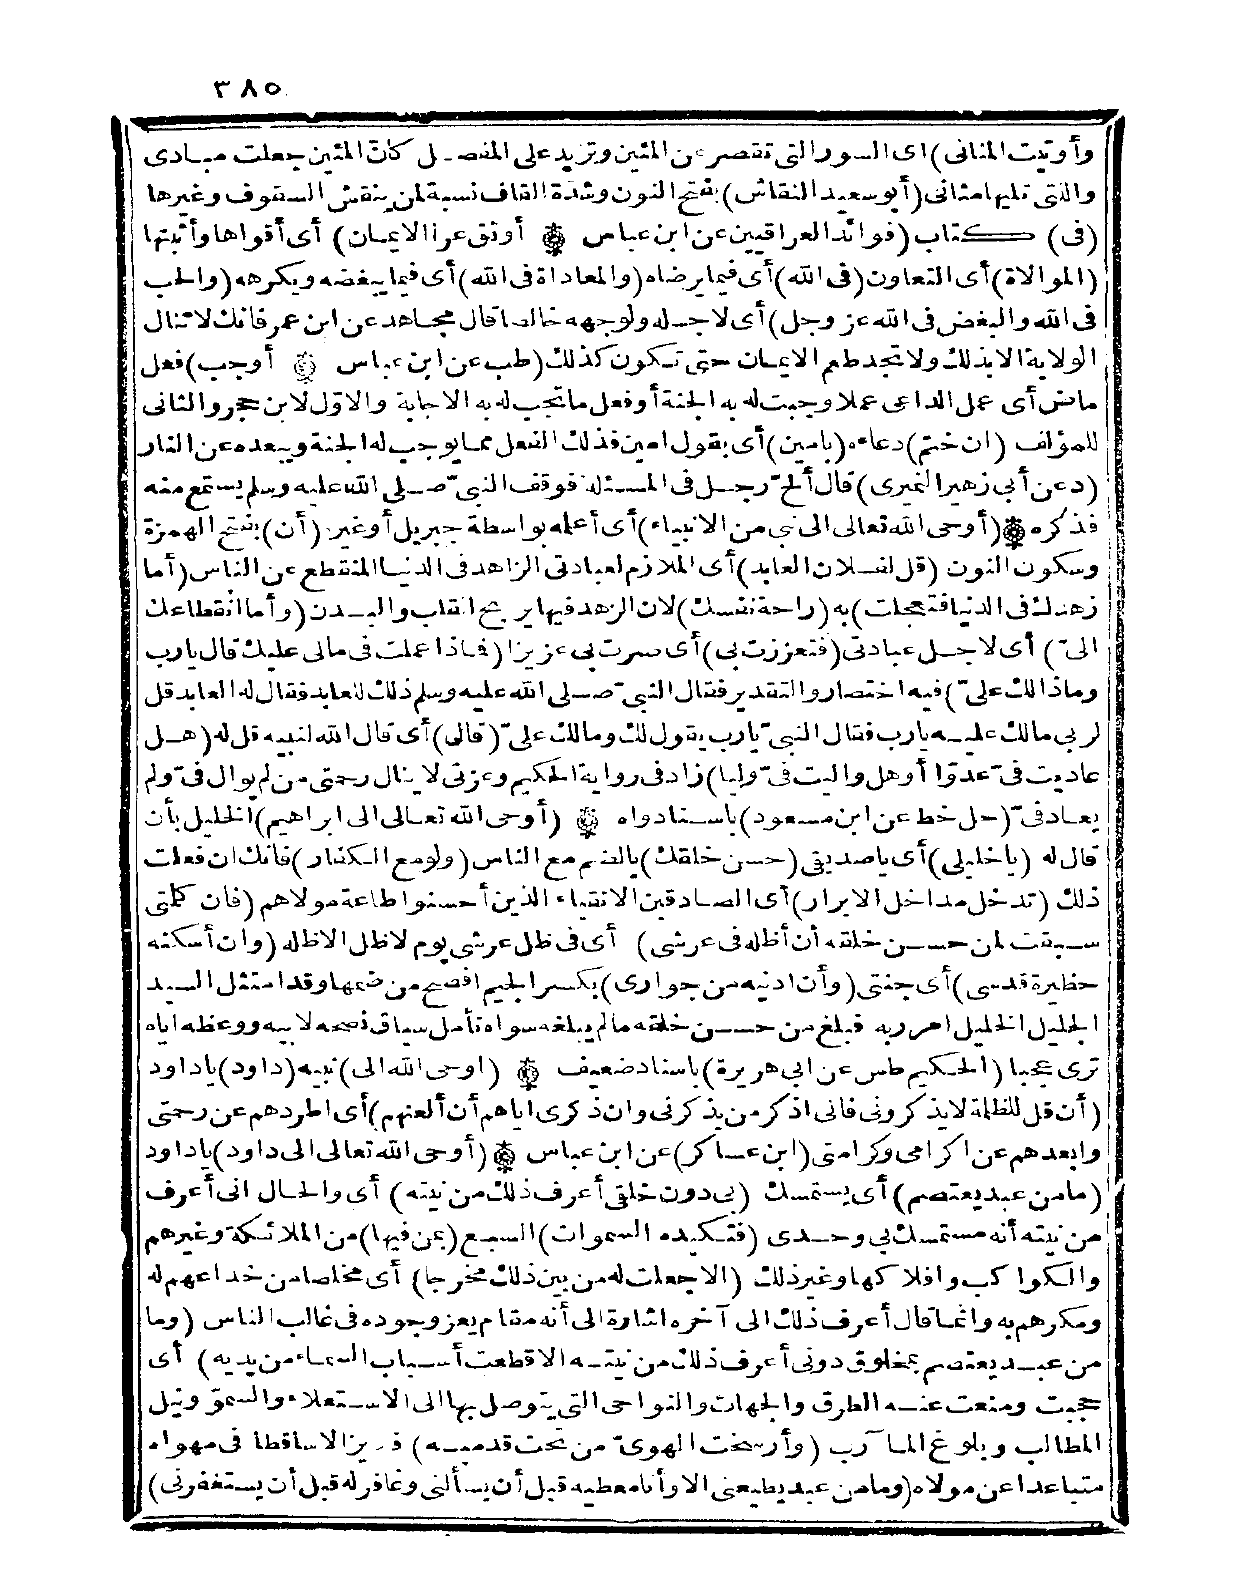 ٣٨٥
وأوتيت المثانى) اى السور التى تقصر عن المئين وتزيد على المفصل كان المئين جعلت مبادى
والتى تليها مثانى (أبو سعيد النقاش) بفتح النون وشدة القاف نسبة لمن ينقش السقوف وغيرها
(فى) كتاب (فوائد العراقيين عن ابن عباس ۞ أوثق عرا الايمان) أى أقواها وأثبتها
(الموالاة) أى التعاون (فى الله) أى فيما يرضاه (والمعاداة فى الله) أى فيما يبغضه ويكرهه (والحب
فى الله والبغض فى الله عز وجل) أى لاجله ولوجهه خالصا قال مجاهد عن ابن عمر فانك لا تنال
الولاية الا بذلك ولا تجد طعم الايمان حتى تكون كذلك (طب عن ابن عباس ۞ أوجب) فعل
ماض أى عمل الداعى عملا وجبت له به الجنة أو فعل ما تجب له به الاجابة والاول لابن حجر والثانى
للمؤلف (ان ختم) دعاءه (بامين) أى بقول امين فذلك الفعل مما يوجب له الجنة ويبعده عن النار
(د عن أبى زهير النميرى) قال ألح رجل فى المسئلة فوقف النبى صلى الله عليه وسلم يستمع منه
فذكره ۞ (أوحى الله تعالى الى نبى من الانبياء) أى أعلمه بواسطة جبريل أو غير (أن) بفتح الهمزة
وسكون النون (قل لفلان العابد) أى الملازم لعبادتى الزاهد فى الدنيا المنقطع عن الناس (أما
زهدك فى الدنيا فتعجلت) به (راحة نفسك) لان الزهد فيها يريح القلب والبدن (وأما انقطاعك
الىّ) أى لاجل عبادتى (فتعززت بى) أى صرت بى عزيزا (فماذا عملت فى مالى عليك قال يارب
وماذا لك علىّ) فيه اختصار والتقدير فقال النبى صلى الله عليه وسلم ذلك للعابد فقال له العابد قل
لربى مالك عليه يارب فقال النبى يارب يقول لك ومالك علىّ (قال) أى قال الله لنبيه قل له (هل
عاديت فىّ عدوّا أو هل واليت فىّ وليا) زاد فى رواية الحكيم وعزتى لا ينال رحمتى من لم يوال فىّ ولم
يعاد فىّ (حل خط عن ابن مسعود) باسناد واه ۞ (أوحى الله تعالى الى ابراهيم) الخليل بأن
قال له (يا خليلى) أى يا صديقى (حسن خلقك) بالضم مع الناس (ولو مع الكفار) فانك ان فعلت
ذلك (تدخل مداخل الابرار) أى الصادقين الاتقياء الذين أحسنوا طاعة مولاهم (فان كلمتى
سبقت لمن حسن خلقه أن أظله فى عرشى) أى فى ظل عرشى يوم لا ظل الا ظله (وان أسكنه
حظيرة قدسى) أى جنتى (وأن ادنيه من جوارى) بكسر الجيم افصح من ضمها وقد امتثل السيد
الجليل الخليل امر ربه فبلغ من حسن خلقه ما لم يبلغه سواه تأمل سياق نصحه لابيه ووعظه اياه
ترى عجبا (الحكيم طس عن ابى هريرة) باسناد ضعيف ۞ (اوحى الله الى) نبيه (داود) يا داود
(أن قل للظلمة لا يذكرونى فانى اذكر من يذكرنى وان ذكرى اياهم أن ألعنهم) أى اطردهم عن رحمتى
وابعدهم عن اكرامى وكرامتى (ابن عساكر) عن ابن عباس ۞ (أوحى الله تعالى الى داود) يا داود
(ما من عبد يعتصم) أى يستمسك (بى دون خلقى أعرف ذلك من نيته) أى والحال انى أعرف
من نيته أنه مستمسك بى وحدى (فتكيده السموات) السبع (بمن فيها) من الملائكة وغيرهم
والكواكب وافلاكها وغير ذلك (الا جعلت له من بين ذلك مخرجا) أى مخلصا من خداعهم له
ومكرهم به وانما قال أعرف ذلك الى آخره اشارة الى أنه مقام يعز وجوده فى غالب الناس (وما
من عبد يعتصم بمخلوق دونى أعرف ذلك من نيته الا قطعت أسباب السماء من يديه) أى
حجبت ومنعت عنه الطرق والجهات والنواحى التى يتوصل بها الى الاستعلاء والسموّ ونيل
المطالب وبلوغ المآرب (وأرسخت الهوىّ من تحت قدميه) فلا يزال ساقطا فى مهواه
متباعدا عن مولاه (وما من عبد يطيعنى الا وأنا معطيه قبل أن يسألنى وغافر له قبل أن يستغفرنى)